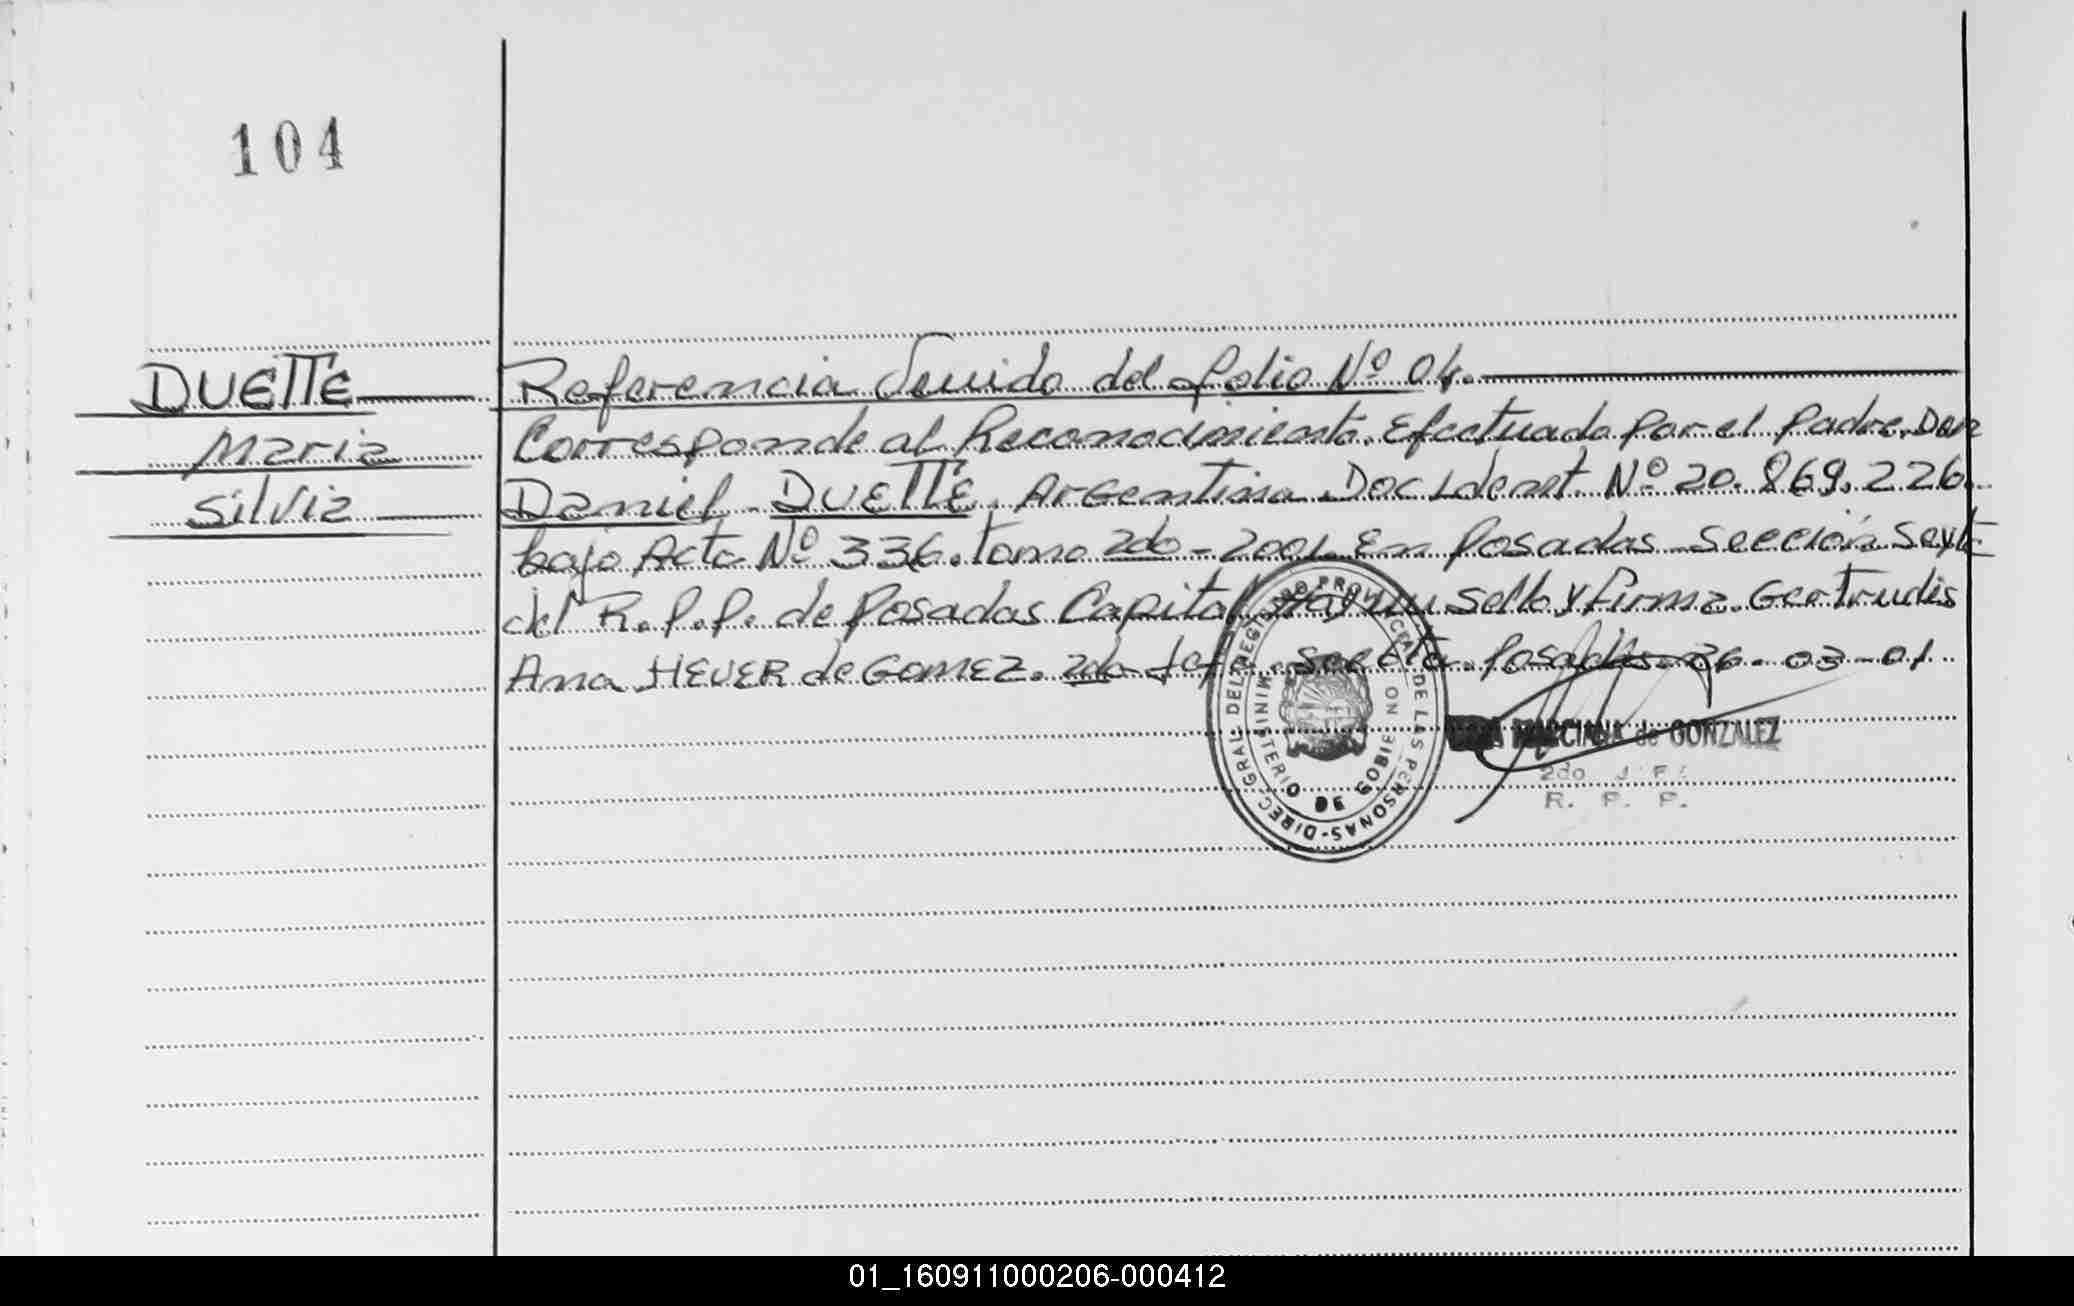 104
DUETTE
Maria
Silvia
Referencia Venido del folio Nº 04.
Corresponde al Reconocimiento. Efectuado por el Padre. Don
Daniel DUETTE. Argentino Doc Ident. Nº 20.869.226.
bajo Acta Nº 336. tomo 2do - 2001. En Posadas Sección Sexta
del R.P.P. de Posadas Capital Hay un sello y firma. Gertrudis
Ana HEUER de GOMEZ. 2do Jefe. Posadas 26-03-01.
DIREC. GRAL. DEL REGISTRO PROVINCIAL DE LAS PERSONAS
MINISTERIO DE GOBIERNO
MARCIANA de GONZALEZ
2do JEFE
R. P. P.
01_160911000206-000412